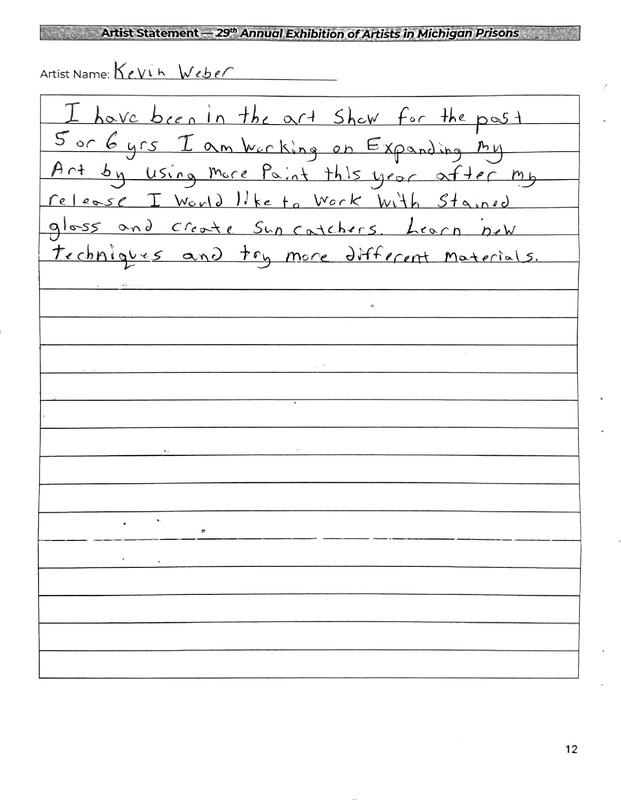 Artist Statement — 29th Annual Exhibition of Artists in Michigan Prisons
Artist Name: Kevin Weber
I have been in the art Show for the past
5 or 6 yrs I am working on Expanding my
Art by using More Paint this year after my
release I Would like to Work With Stained
glass and create Sun catchers. Learn new
techniques and try more different Materials.
12